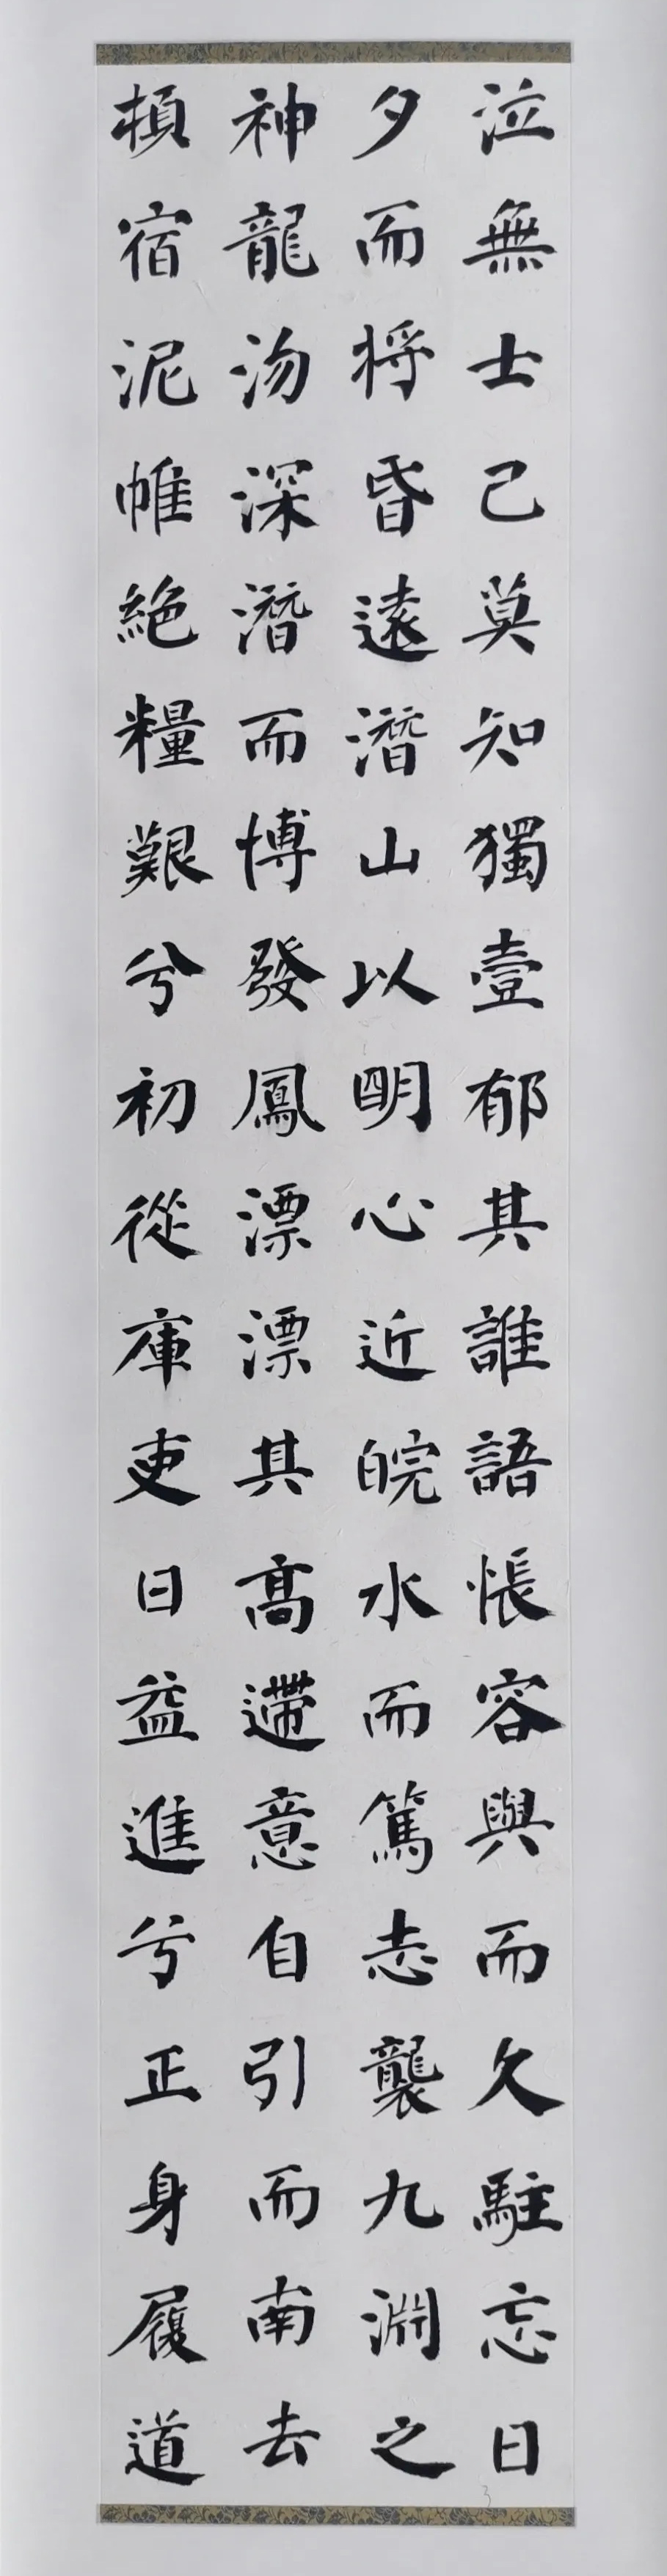 泣無士己莫知獨壹郁其誰語悵容與而久駐忘日
夕而將昏遠潛山以明心近皖水而篤志襲九淵之
神龍沕深潛而博發鳳漂漂其高遰意自引而南去
頓宿泥帷絕糧艱兮初從庫吏日益進兮正身履道
3